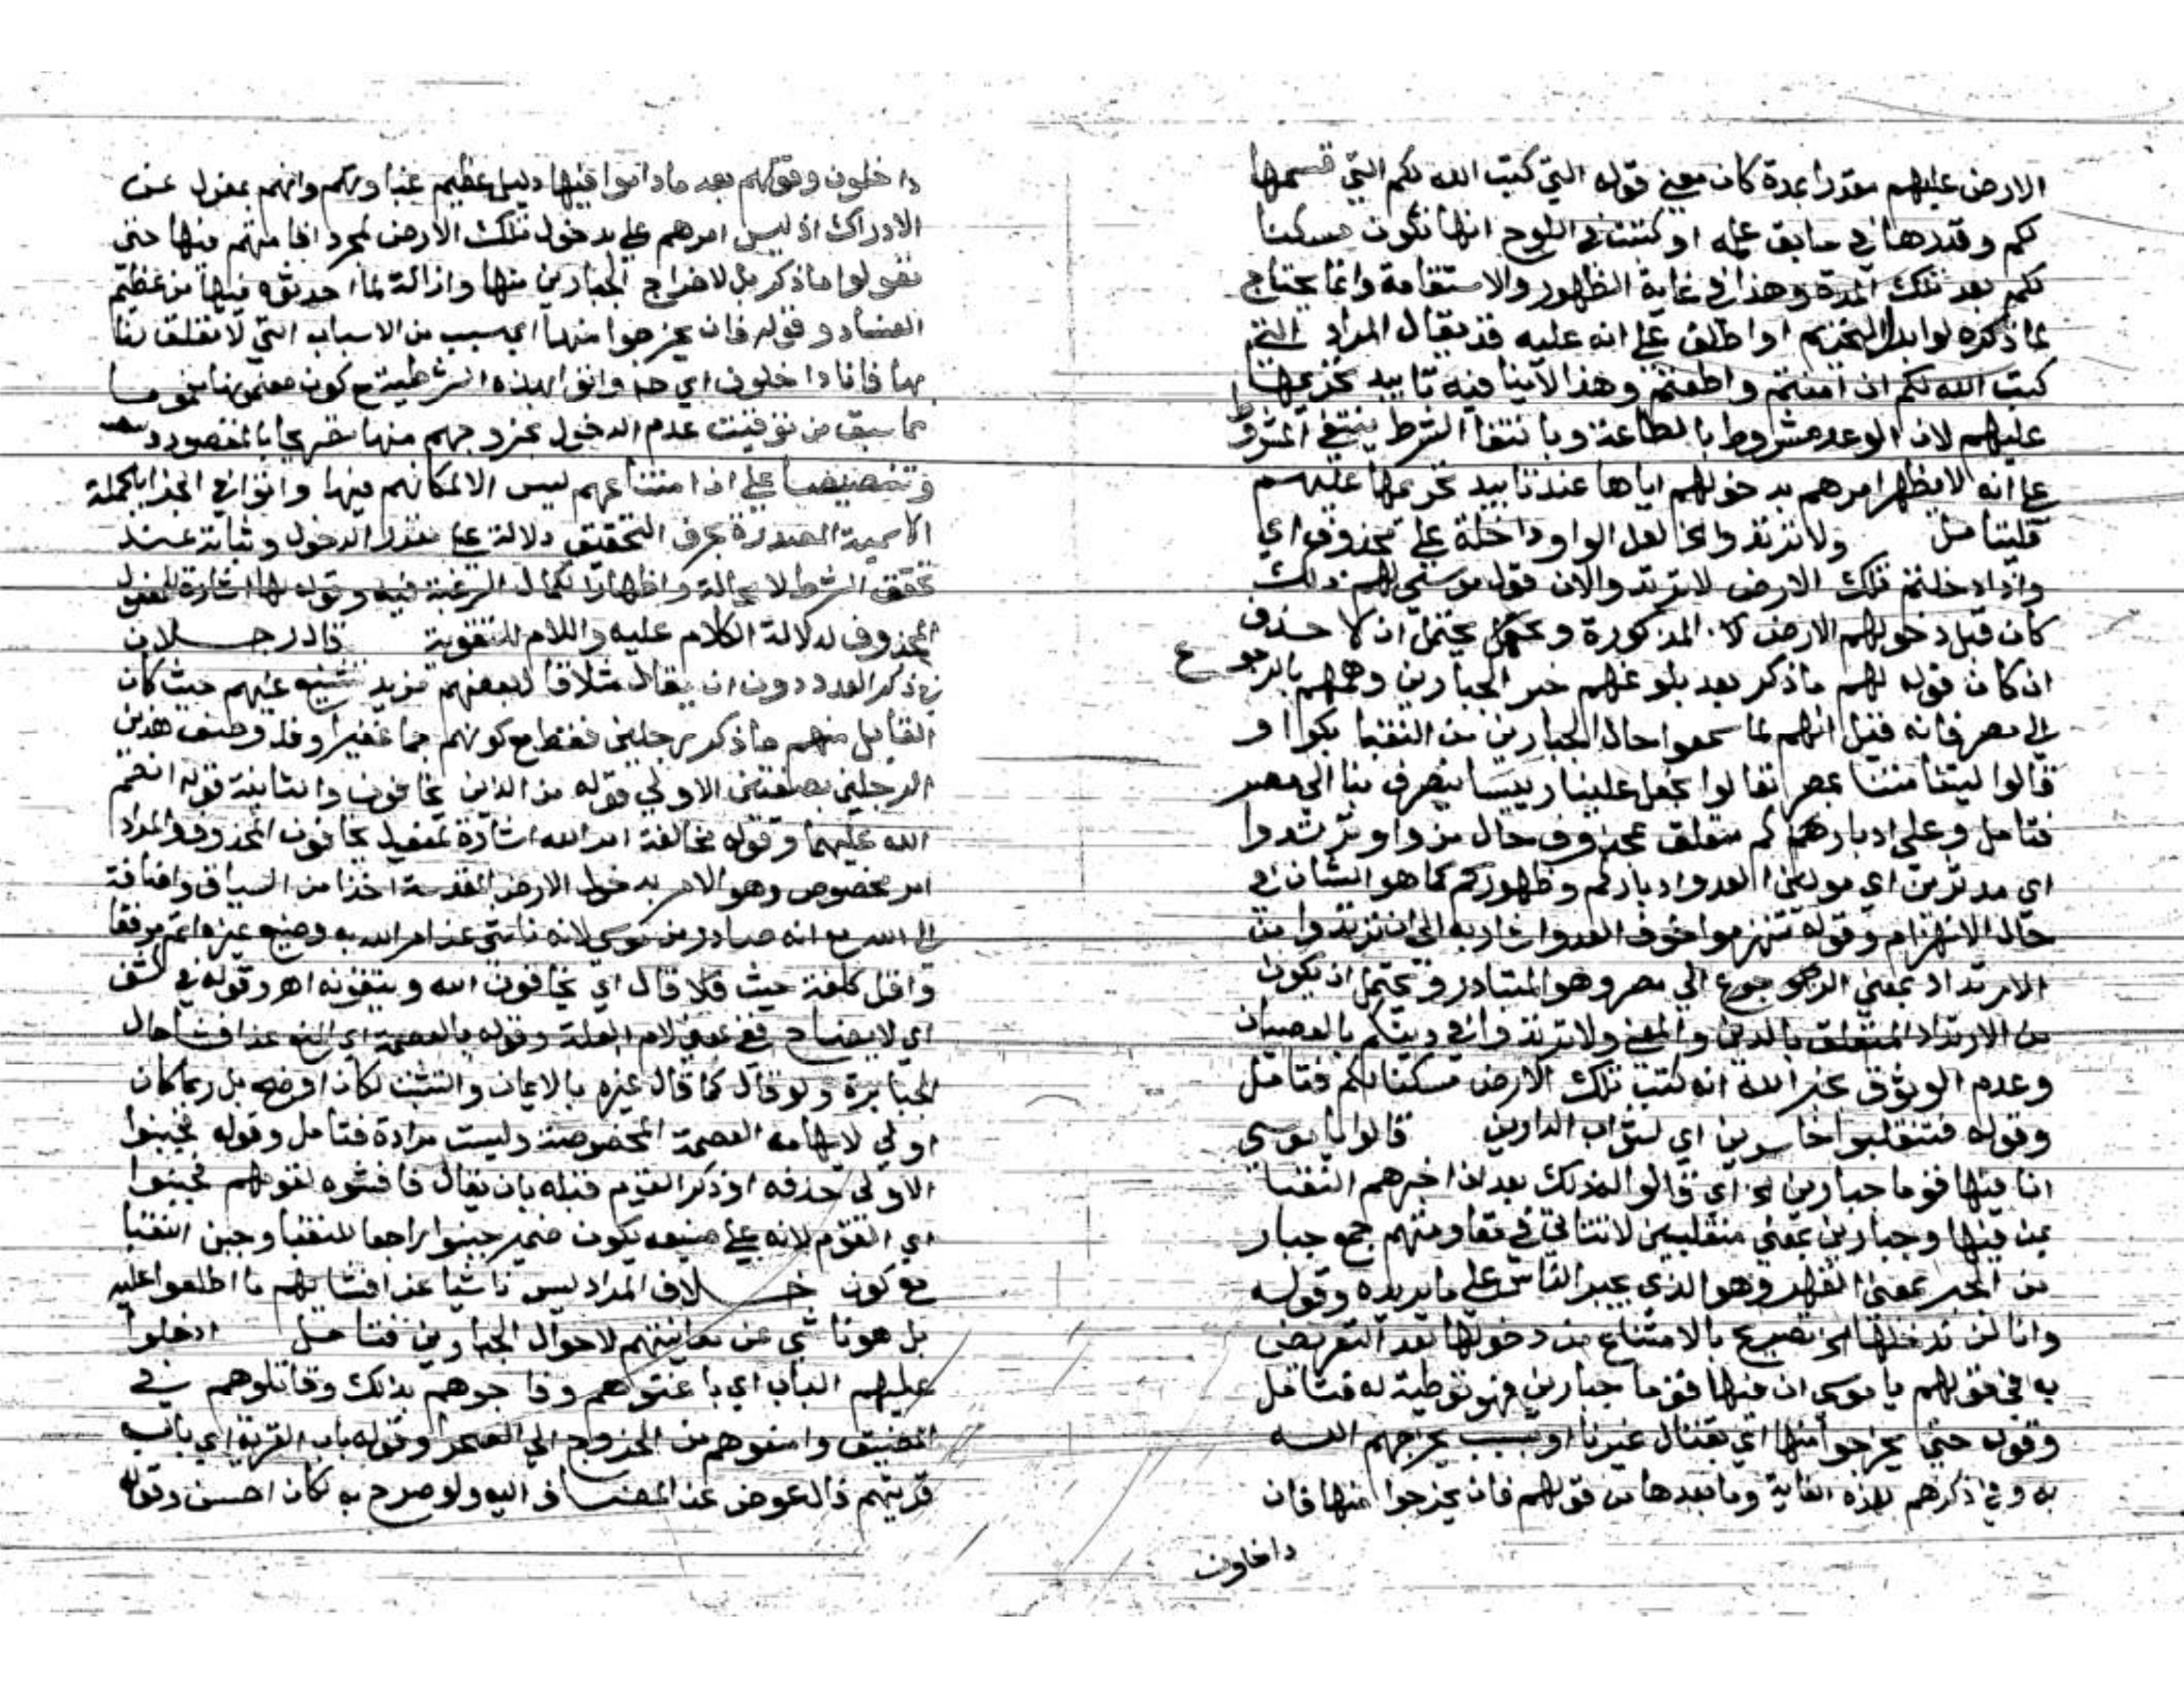 الارض عليهم مقدرا بمدة كان معنى قوله التي كتب الله لكم التي قسمها
لكم وقدرها في سابق علمه او كتبت في اللوح انها تكون مسكنا
لكم بعد تلك المدة وهذا في غاية الظهور والاستقامة وانما يحتاج
لما ذكره لو ابد التحريم او اطلق على انه عليه قد يقال المراد التي
كتب الله لكم ان امنتم واطعتم وهذا لا ينافيه تابيد تحريمها
عليهم لان الوعد مشروط بالطاعة وبانتفا الشرط ينتفي المشروط
على انه لا يظهر امرهم بدخولهم اياها عند تابيد تحريمها عليهم
فليتامل ولا ترتدوا الخ لعل الواو داخلة على محذوف اي
واذا دخلتم تلك الارض لا ترتدوا لان قول موسى لهم ذلك
كان قبل دخولهم الارض المذكورة يحتمل ان لا حذف
ان كان قوله لهم ما ذكر بعد بلوغهم خبر الجبارين وهمهم بالرجوع
الى مصر فانه قيل انهم لما سمعوا حال الجبارين من النقبا بكوا و
قالوا ليتنا متنا بمصر تعالوا نجعل علينا رييسا ينصرف بنا الى مصر
فتامل وعلى ادباركم متعلق بمحذوف حال من واو ترتدوا
اي مدبرين اي مولين العدو ادباركم وظهوركم كما هو الشان في
حال الانهزام وقوله تنهزموا خوف العدو اشار به الى ان ترتدوا من
الارتداد بمعنى الرجوع الى مصر وهو المتبادر ويحتمل ان يكون
من الارتداد المتعلق بالدين والمعنى ولا ترتدوا في دينكم بالعصيان
وعدم الوثوق بخبر الله انه كتب تلك الارض مسكنا لكم فتامل
وقوله فتنقلبوا خاسرين اي لثواب الدارين قالوا يا موسى
ان فيها قوما جبارين الخ اي قالوا له ذلك بعد ان اخبرهم النقبا
بمن فيها وجبارين بمعنى متغلبين لا تتاتى مقاومتهم جمع جبار
من الجبر بمعنى القهر وهو الذي يجبر الناس على ما يريده وقوله
وانا لن ندخلها الخ تصريح بالامتناع من دخولها بعد التعريض
به في قولهم يا موسى ان فيها قوما جبارين فهو توطية له فتامل
وقوله حتى يخرجوا منها اي بقتال غيرنا او بسبب يخرجهم الله
به وفي ذكرهم لهذه الغاية وما بعدها من قولهم فان يخرجوا منها فانا
داخلون
داخلون وقولهم بعد ما داموا فيها دليل عظيم غباوتهم وانهم بمعزل عن
الادراك اذ ليس امرهم بدخول تلك الارض لمجرد اقامتهم فيها حتى
يقولوا ما ذكر بل لاخراج الجبارين منها وازالة لما احدثوه فيها من عظيم
الفساد وقوله فان يخرجوا منها اي بسبب من الاسباب التي لا تعلق لنا
بها فانا داخلون اي ح واتوا بهذه الشرطية مع كون مضمونها مفهوما
مما سبق من توقيت عدم الدخول بخروجهم منها تصريحا بالمقصود
وتنصيصا على ان امتناعهم ليس الا لمكانهم فيها واتوا في الجزا بالجملة
الاسمية المصدرة بحرف التحقيق دلالة على تقدر الدخول وثباته عند
تحقق الشرط لا محالة واظهارا لكمال الرغبة فيه وقوله لها اشارة للمفعول
المحذوف لدلالة الكلام عليه واللام للتقوية قال رجلان
في ذكر العدد دون ان يقال مثلا قال بعضهم مزيد تشنيع عليهم حيث كان
القايل منهم ما ذكر رجلين فقط مع كونهم جما غفيرا وقد وصف هذين
الرجلين بصفتين الاولى قوله من الذين يخافون والثانية قوله انعم
الله عليهما وقوله مخالفة امر الله اشارة لمفعول يخافون المحذوف والمراد
امر مخصوص وهو الامر بدخول الارض المقدسة اخذا من السياق واضافة
الى الله مع انه صادر من موسى لانه ناشي عن امر الله به وصنيع غيره اتم موقعا
واقل كلفة حيث قال اي يخافون الله ويتقونه اهـ وقوله في كشف
اي لايضاح ففي بمعنى لام العلة وقوله بالعصمة اي المنع عن افشا حال
الجبابرة ولو قال كما قال غيره بالايمان والتثبت لكان اوضح بل ربما كان
اولى لايهامه العصمة المخصوصة وليست مرادة فتامل وقوله فجبنوا
الاولى حذفه او ذكر القوم قبله بان يقال فافشوه لقومهم فجبنوا
اي القوم لانه على صنيعه يكون ضمير جبنوا راجعا للنقبا وجبن النقبا
مع كونه خلاف المراد ليس ناشيا عن افشايهم ما اطلعوا عليه
بل هو ناشي عن معاينتهم لاحوال الجبارين فتامل ادخلوا
عليهم الباب اي باغتوهم وفاجوهم بذلك وقاتلوهم في
المضيق وامنعوهم من الخروج الى الصحرا وقوله باب القرية اي باب
قريتهم فال عوض عن المضاف اليه ولو صرح به لكان احسن وقوله